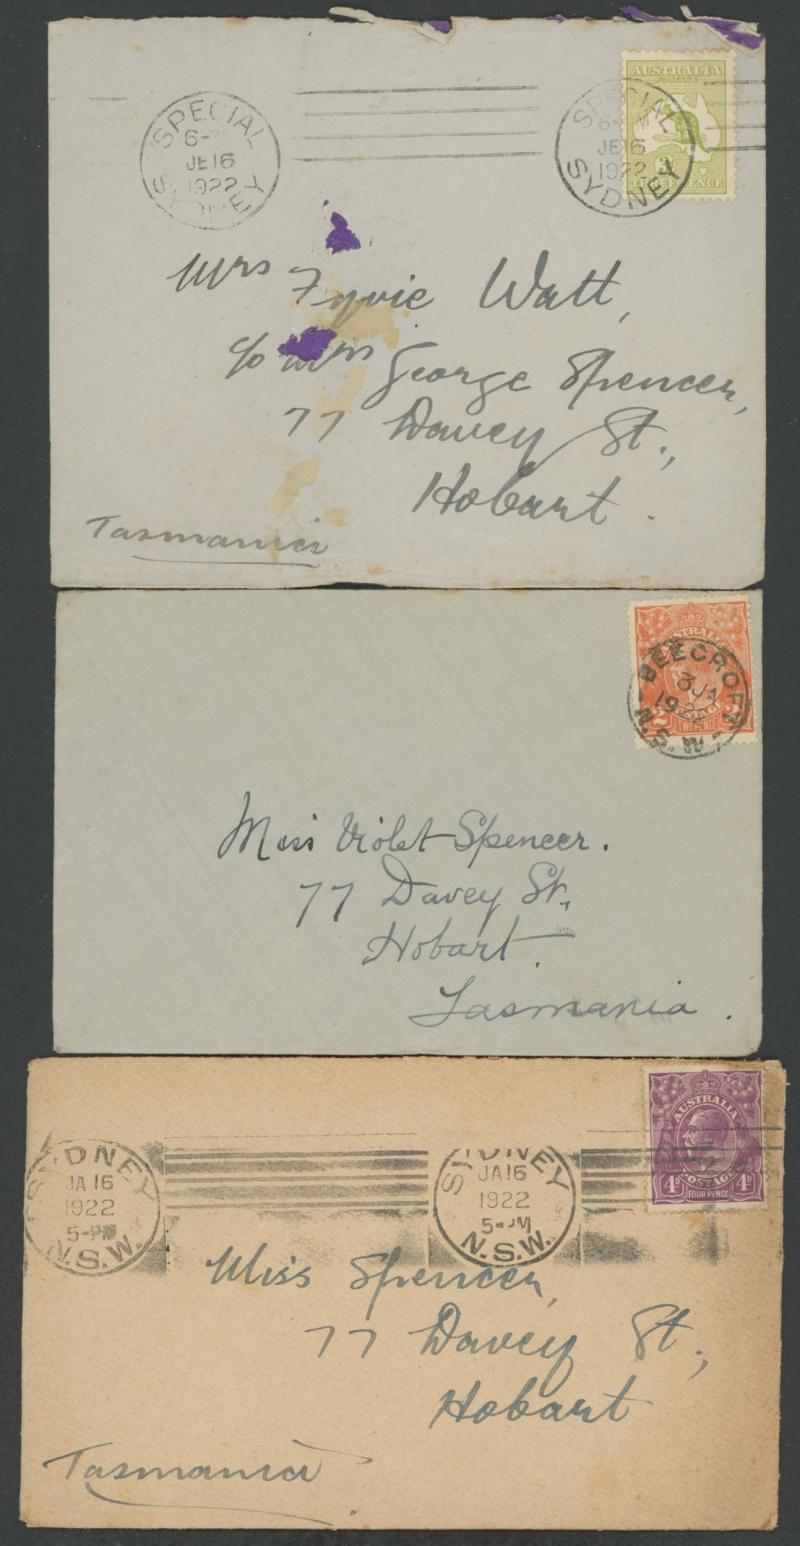 SPECIAL
6-
JE 16
1922
SYDNEY
SPECIAL
6-
JE 16
1922
SYDNEY
AUSTRALIA
POSTAGE
THREE PENCE
Mrs Fyvie Watt,
c/o Mrs George Spencer,
77 Davey St.,
Hobart.
Tasmania
AUSTRALIA
POSTAGE
2 2
TWO PENCE
BEECROFT
3 JA
1922
N.S.W
Miss Violet Spencer.
77 Davey St.,
Hobart.
Tasmania.
SYDNEY
JA 16
1922
5-PM
N.S.W.
SYDNEY
JA 16
1922
5-PM
N.S.W.
AUSTRALIA
POSTAGE
4D 4D
FOUR PENCE
Miss Spencer,
77 Davey St.,
Hobart
Tasmania